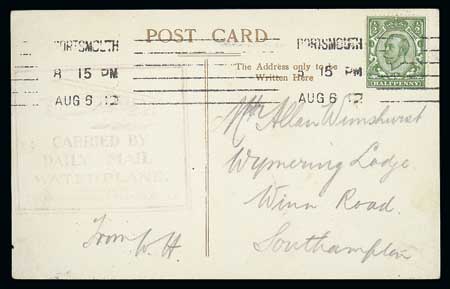 POST CARD
PORTSMOUTH
8 15 PM
AUG 6 12
PORTSMOUTH
8 15 PM
AUG 6 12
HALFPENNY
The Address only to be
Written Here
CARRIED BY
DAILY MAIL
WATERPLANE
From W. H.
Allan Wimshurst
Wymering Lodge
Winn Road.
Southampton